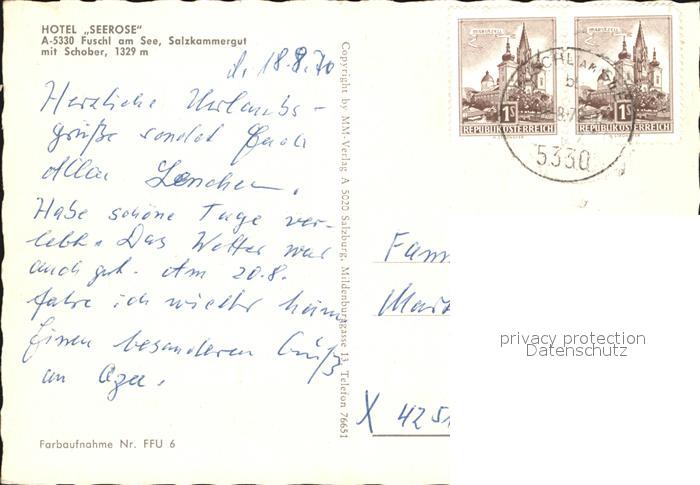 HOTEL „SEEROSE"
A-5330 Fuschl am See, Salzkammergut
mit Schober, 1329 m
d. 18.8.70
Herzliche Urlaubs-
grüße sendet Euch
allen Lenchen.
Habe schöne Tage ver-
lebt. Das Wetter war
auch gut. Am 20.8.
fahre ich wieder heim
Einen besonderen Gruß
an
Farbaufnahme Nr. FFU 6
Copyright by MM-Verlag A 5020 Salzburg, Mildenburggasse 13, Telefon 76651
MARIAZELL
1S
REPUBLIK ÖSTERREICH
MARIAZELL
1S
REPUBLIK ÖSTERREICH
5330
Fam
X 4251
privacy protection
Datenschutz